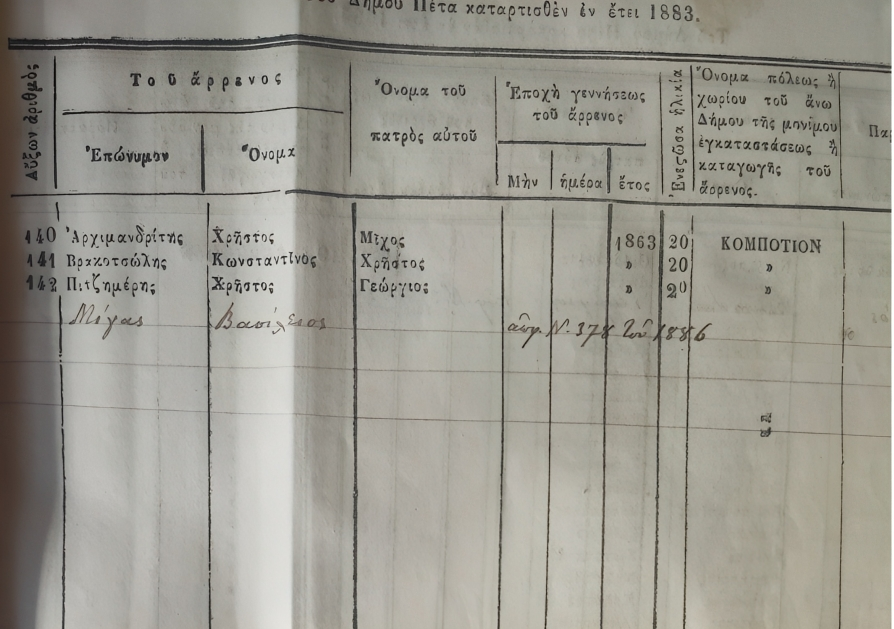 Δήμου Πέτα καταρτισθὲν ἐν ἔτει 1883.
Αὔξων ἀριθμὸς
Τοῦ ἄρρενος
Ἐπώνυμον
Ὄνομα
Ὄνομα τοῦ
πατρὸς αὐτοῦ
Ἐποχὴ γεννήσεως
τοῦ ἄρρενος
Μὴν
ἡμέρα
ἔτος
Ἐνεζῶσα ἡλικία
Ὄνομα πόλεως ἢ
χωρίου τοῦ ἄνω
Δήμου τῆς μονίμου
ἐγκαταστάσεως ἢ
καταγωγῆς τοῦ
ἄρρενος.
140 Ἀρχιμανδρίτης Χρῆστος Μῖχος 1863 20 ΚΟΜΠΟΤΙΟΝ
141 Βρακοτσώλης Κωνσταντῖνος Χρῆστος » 20 »
142 Πιτζημέρης Χρῆστος Γεώργιος » 20 »
Μίγας Βασίλειος Ν. 378 τοῦ 1886